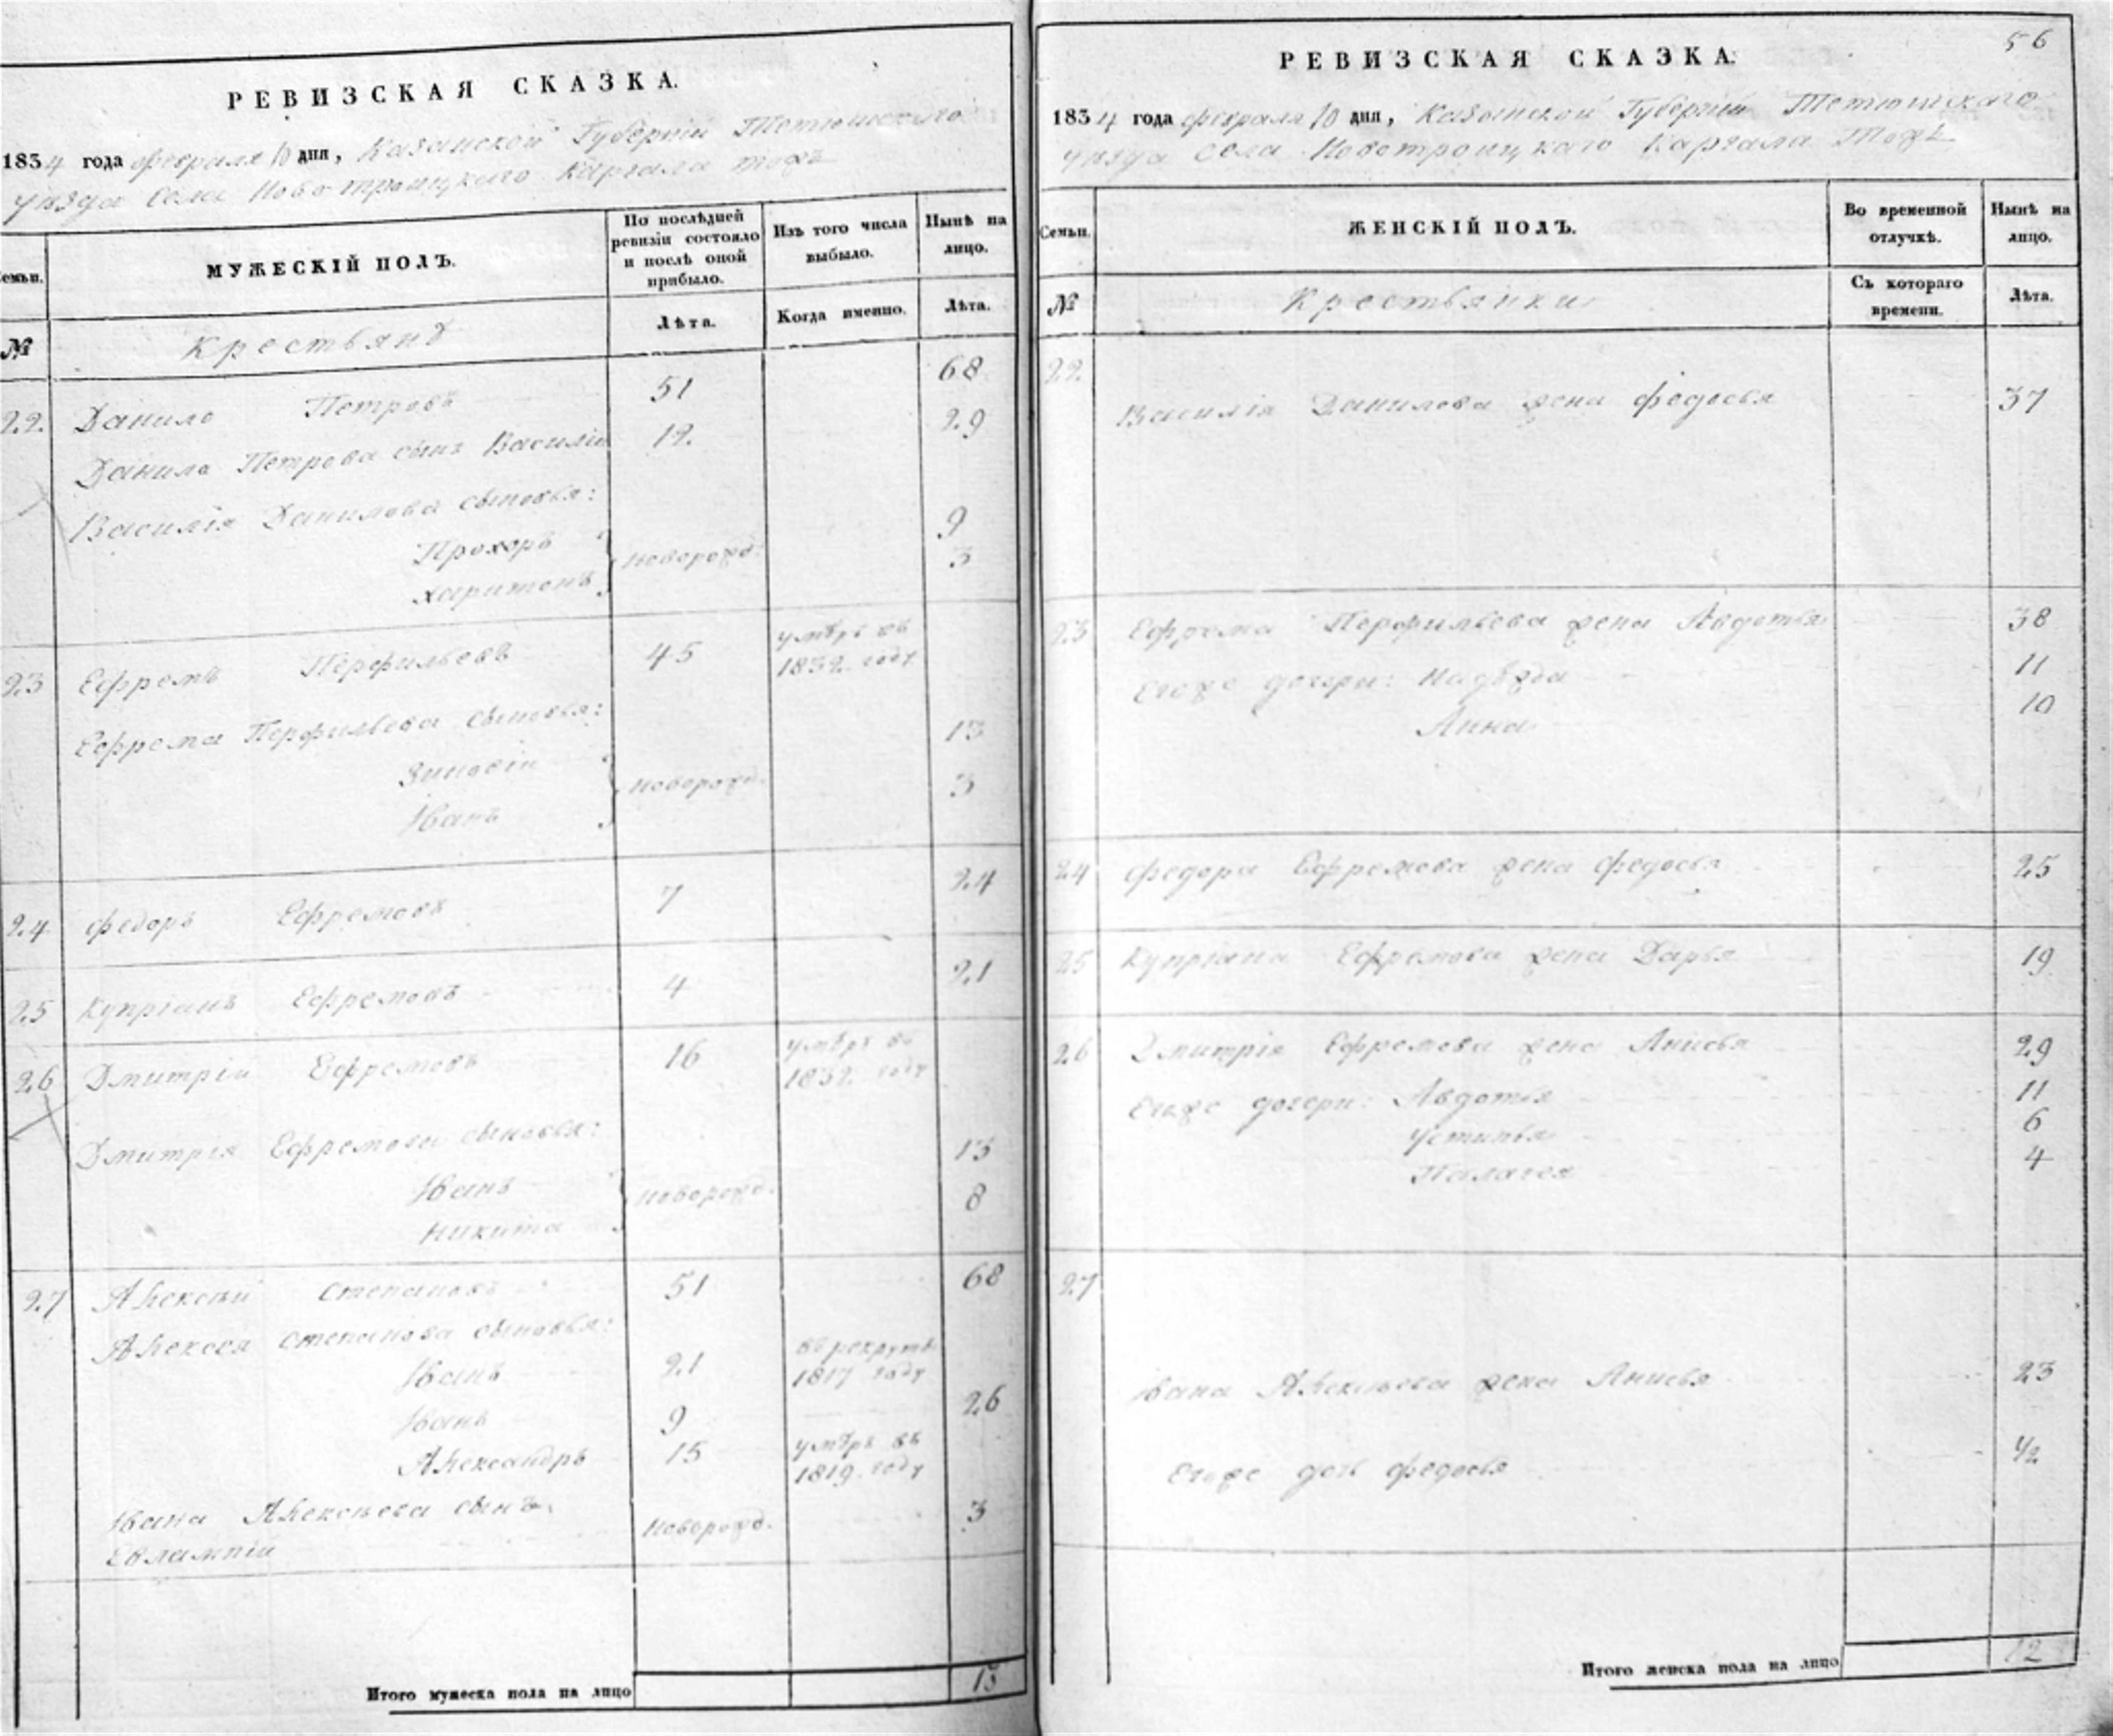 РЕВИЗСКАЯ СКАЗКА.
1834 года февраля 10 дня, Казанской Губернии Тетюшскаго
уезда Села Новотроицкаго Каргала тожъ
Семьи.
МУЖЕСКІЙ ПОЛЪ.
По послѣдней ревизіи состояло и послѣ оной прибыло.
Изъ того числа выбыло.
Нынѣ на лицо.
№
Крестьянѣ
Лѣта.
Когда именно.
Лѣта.
22. Данило Петровъ 51 68
Данило Петрова сынъ Василіи 12. 29
Василія Данилова сыновья:
Прохоръ 9
Новорожд:
Харитонъ 3
23 Ефремъ Перфильевъ 45 умѣръ въ 1832 году
Ефрема Перфильева сыновья:
Зиновіи 13
Новорожд.
Iванъ 3
24 Федоръ Ефремовъ 7 24
25 Купріанъ Ефремовъ 4 21
26 Дмитріи Ефремовъ 16 умѣръ въ 1832 году
Дмитрія Ефремова сыновья:
Iванъ 13
Новорожд.
Никита 8
27 Алексѣи Степановъ 51 68
Алексея Степанова сыновья:
Iванъ 21 въ рекруты 1817 году
Iванъ 9 26
Александръ 15 умѣръ въ 1819 году
Iвана Алексѣева сынъ Новорожд. 3
Евлампіи
Итого мужеска пола на лицо 13
56
РЕВИЗСКАЯ СКАЗКА.
1834 года февраля 10 дня, Казанской Губерніи Тетюшскаго
уезда Села Новотроицкаго Каргала Тожъ
Семьи.
ЖЕНСКІЙ ПОЛЪ.
Во временной отлучкѣ.
Нынѣ на лицо.
№
Крестьянки
Съ котораго времени.
Лѣта.
22.
Василія Данилова жена Федосья 37
23 Ефрема Перфильева жена Авдотья 38
Егоже дочери: Надѣжда 11
Анна 10
24 Федора Ефремова жена Федосья 25
25 Купріана Ефремова жена Дарья 19
26 Дмитрія Ефремова жена Анисья 29
Егоже дочери: Авдотья 11
Устинья 6
Палагея 4
27
Iвана Алексѣева жена Анисья 23
Егоже дочь Федосья 1/2
Итого женска пола на лицо 12